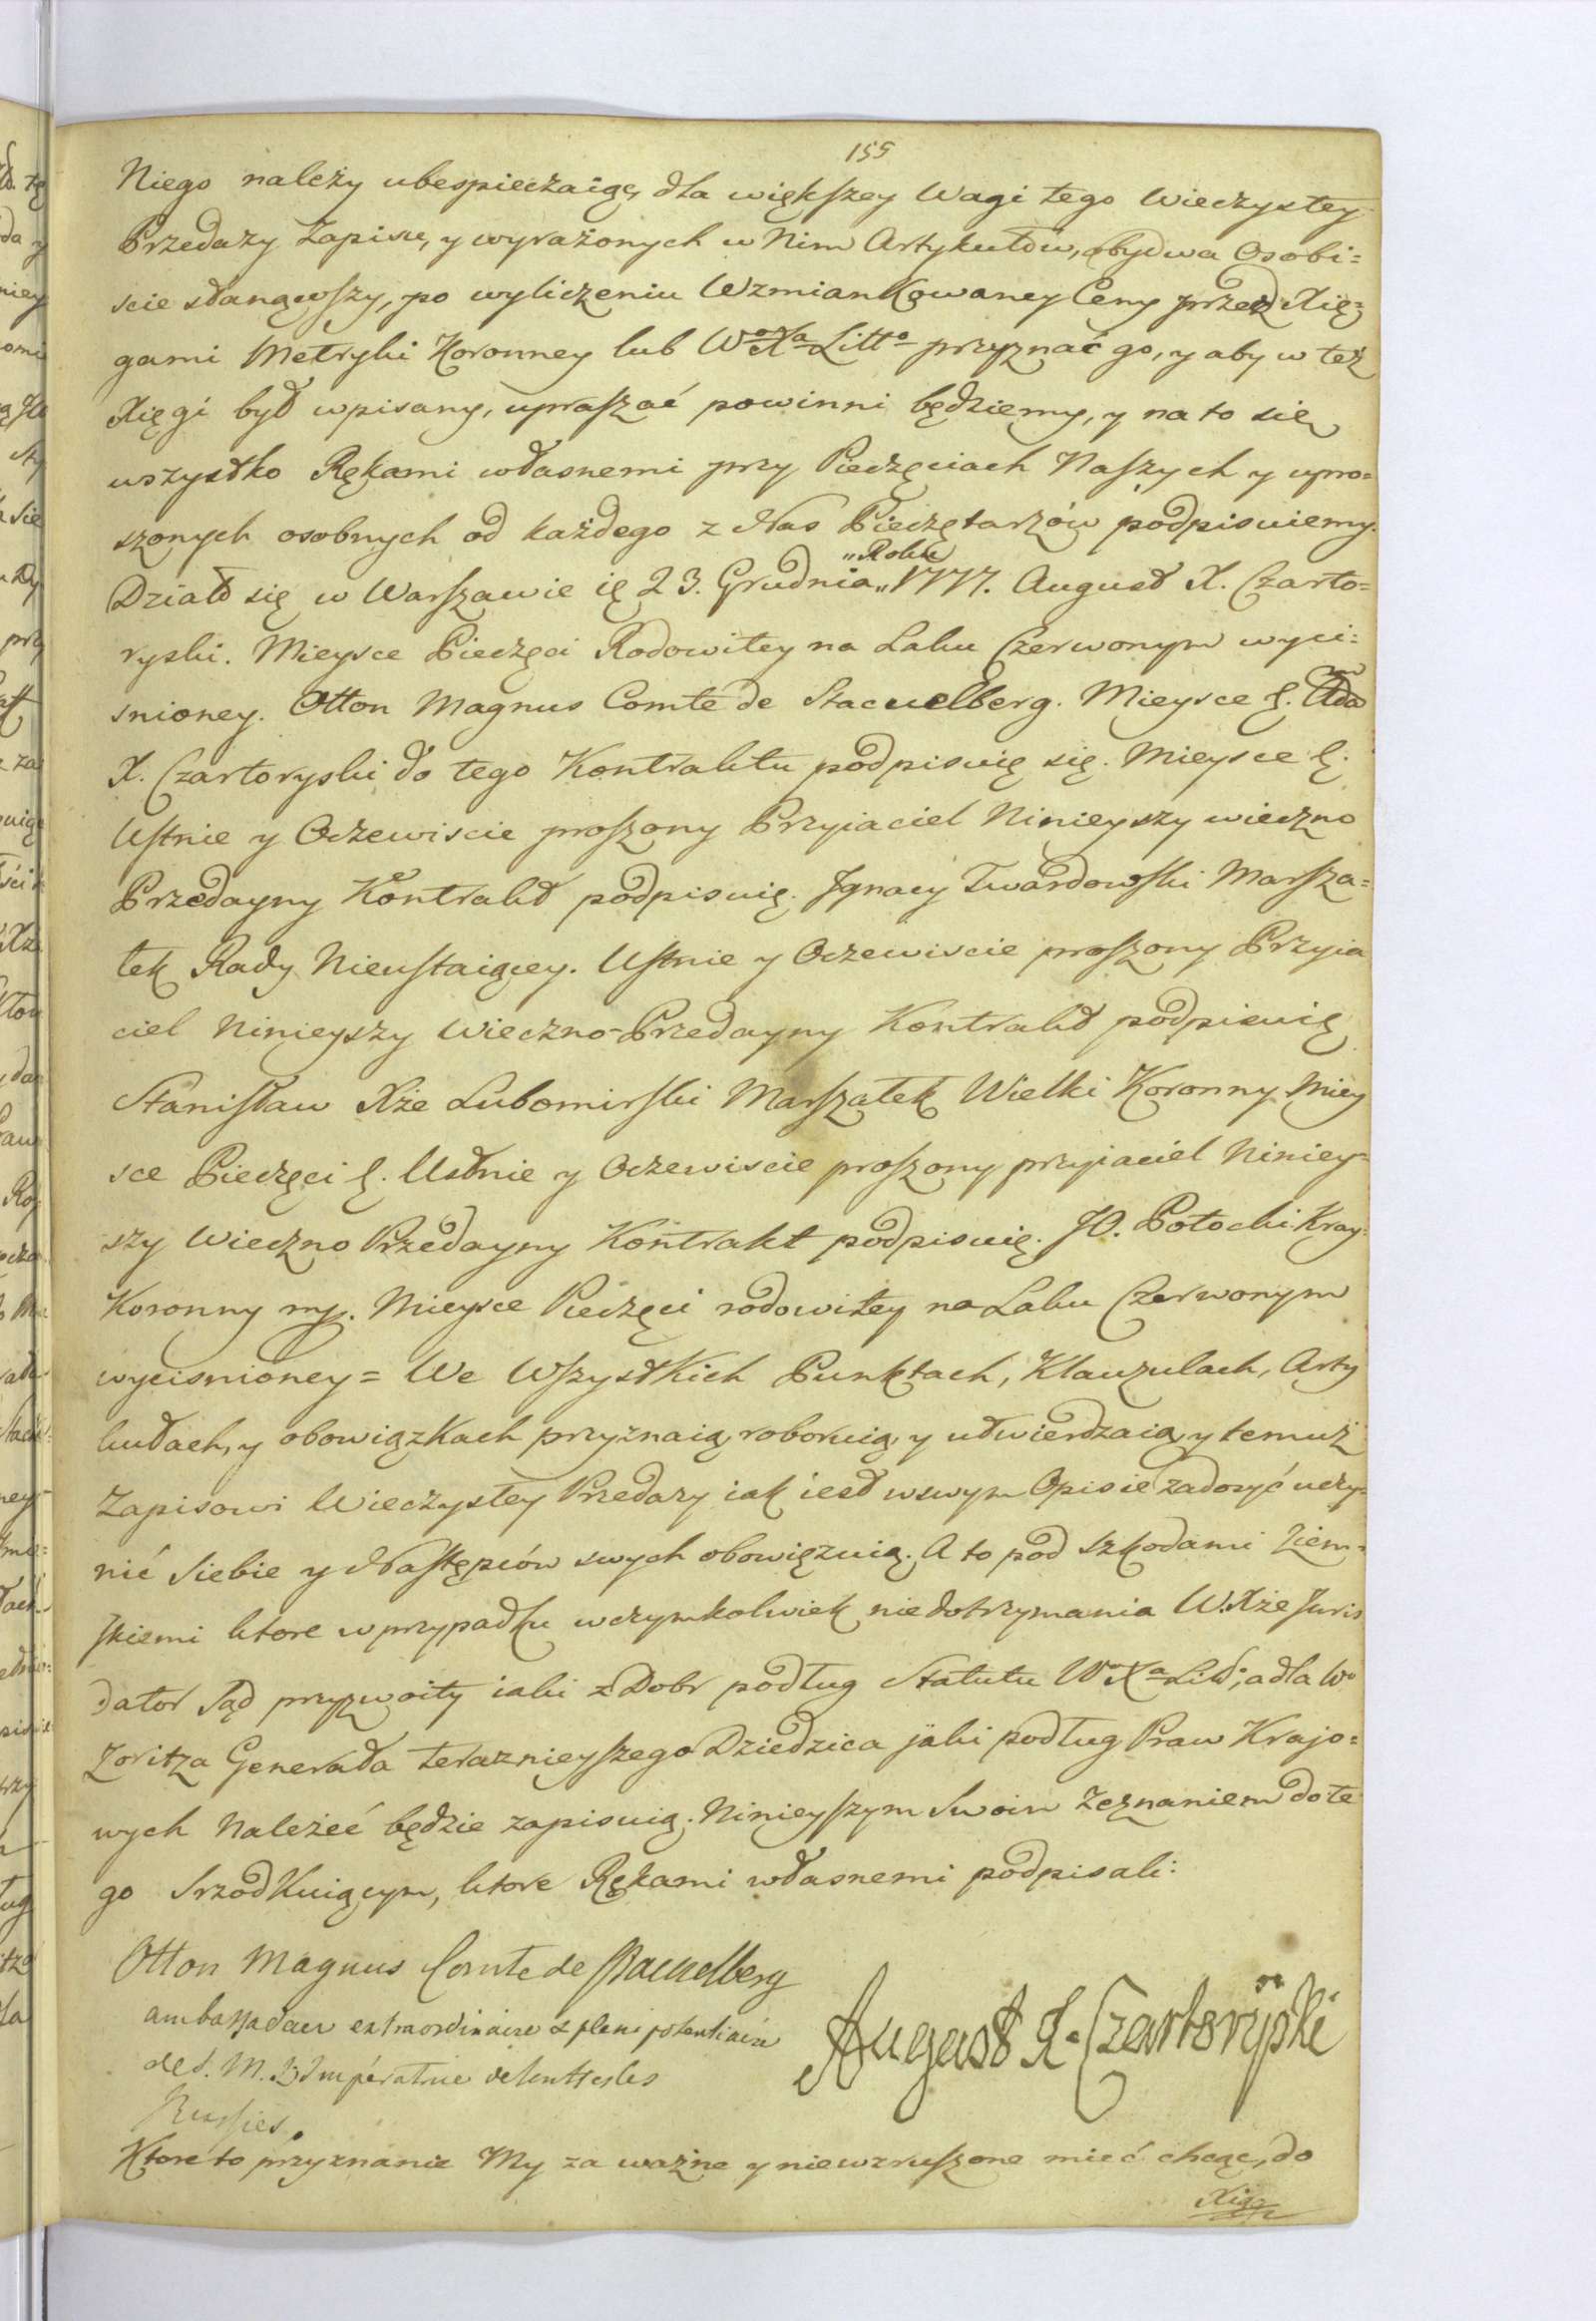 155
Niego należy ubespieczaiąc, dla większey Wagi tego Wieczystey
Przedaży Zapisu, y wyrażonych w Nim Artykułów, obydwa Osobi=
scie stanąwszy, po wyliczeniu Wzmiankowaney Ceny przed Xię=
gami Metryki Koronney lub Wo Xa Litto przyznać go, y aby w też
Xięgi był wpisany, upraszać powinni będziemy, y na to się
wszystko Rękami własnemi przy Pieczęciach Naszych y upro=
szonych osobnych od każdego z Nas Pieczętarzów podpisuiemy.
Działo się w Warszawie ię 23. Grudnia „Roku„ 1777. August X. Czarto=
ryski. Mieysce Pieczęci Rodowitey na Laku Czerwonym wyci=
snioney. Otton Magnus Comte de Stackelberg. Mieysce ę. Adam
X. Czartoryski do tego Kontraktu podpisuię się. Mieysce ę.
Ustnie y Oczewiscie proszony Przyiaciel Ninieyszy wieczno
Przedayny Kontrakt podpisuię. Ignacy Twardowski Marsza=
łek Rady Nieustaiącey. Ustnie y Oczewiscie proszony Przyia
ciel Ninieyszy Wieczno-Przedayny Kontrakt podpisuię
Stanisław Xże Lubomirski Marszałek Wielki Koronny. Miey
sce Pieczęci ę. Ustnie y Oczewiscie proszony przyiaciel Niniey=
szy Wieczno Przedayny Kontrakt podpisuię. JO. Potocki Kray:
Koronny mp. Mieysce Pieczęci rodowitey na Laku Czerwonym
wycisnioney = We Wszystkich Punktach, Klauzulach, Arty
kułach, y obowiązkach przyznaią, roboruią, y utwierdzaią, y temuż
Zapisowi Wieczystey Przedaży iak iest w swym Opisie zadosyć uczy=
nić siebie y Następców swych obowięzuią. A to pod szkodami Ziem=
skiemi ktore w przypadku w czymkolwiek niedotrzymania W. Xże Juris
dator Sąd przyzwoity iaki z Dobr podług Statutu Wo Xa Lit; a dla Wo
Zoritza Generała terazнieyszego Dziedzica jaki podług Praw Krajo=
wych Należeć będzie zapisuią. Ninieyszym Swoim Zeznaniem do te
go Srzodkuiącym, ktore Rękami własnemi podpisali:
Otton Magnus Comte de Stackelberg
ambassadeur extraordinaire & plenipotentiaire
de S. M. L'Impératrice de toutes les
Russies.
August X. Czartoryski
Ktore to przyznanie My za ważne y niewzruszone mieć chcąc, do
Xiąg